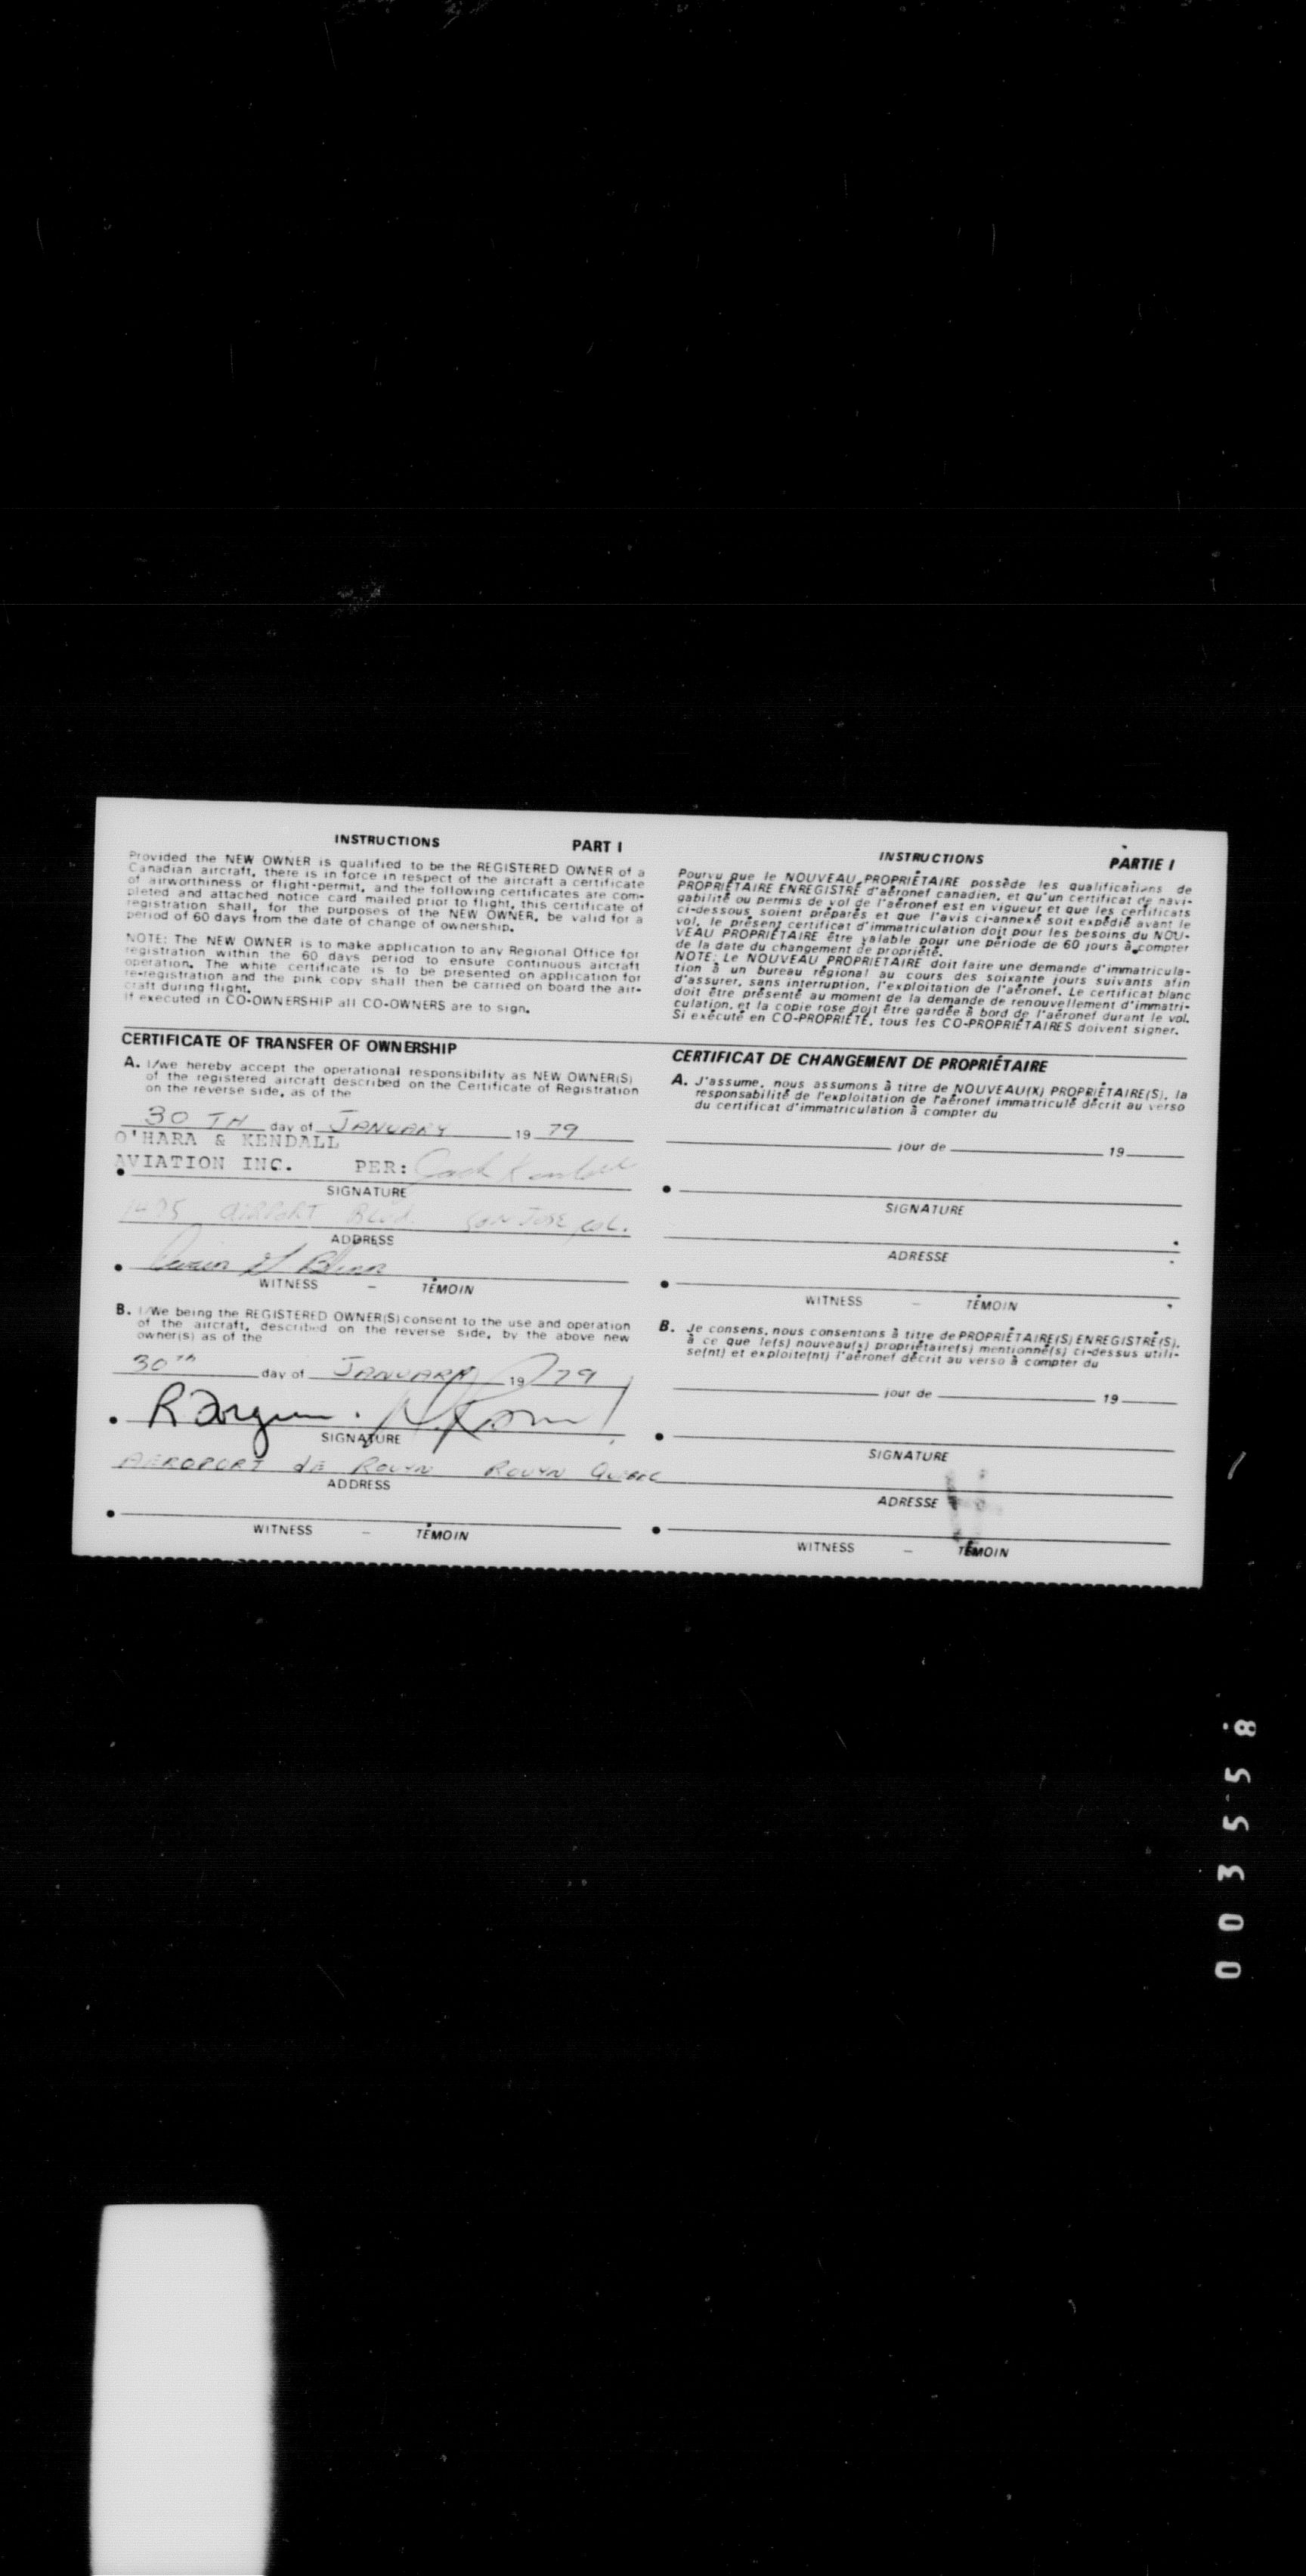 INSTRUCTIONS PART I
Provided the NEW OWNER is qualified to be the REGISTERED OWNER of a
Canadian aircraft, there is in force in respect of the aircraft a certificate
of airworthiness or flight-permit, and the following certificates are com-
pleted and attached notice card mailed prior to flight, this certificate of
registration shall, for the purposes of the NEW OWNER, be valid for a
period of 60 days from the date of change of ownership.
NOTE: The NEW OWNER is to make application to any Regional Office for
registration within the 60 days period to ensure continuous aircraft
operation. The white certificate is to be presented on application for
re-registration and the pink copy shall then be carried on board the air-
craft during flight.
If executed in CO-OWNERSHIP all CO-OWNERS are to sign.
CERTIFICATE OF TRANSFER OF OWNERSHIP
A. I/we hereby accept the operational responsibility as NEW OWNER(S)
of the registered aircraft described on the Certificate of Registration
on the reverse side, as of the
30 TH day of JANUARY 19 79
O'HARA & KENDALL
AVIATION INC. PER:
SIGNATURE
AIRPORT Blvd. SAN JOSE, Cal.
ADDRESS
WITNESS – TÉMOIN
B. I/We being the REGISTERED OWNER(S) consent to the use and operation
of the aircraft, described on the reverse side, by the above new
owner(s) as of the
30th day of JANUARY 19 79
SIGNATURE
AEROPORT de ROUYN ROUYN QUEBEC
ADDRESS
WITNESS – TÉMOIN
INSTRUCTIONS PARTIE I
Pourvu que le NOUVEAU PROPRIÉTAIRE possède les qualifications de
PROPRIÉTAIRE ENREGISTRÉ d'aéronef canadien, et qu'un certificat de navi-
gabilité ou permis de vol de l'aéronef est en vigueur et que les certificats
ci-dessous soient préparés et que l'avis ci-annexé soit expédié avant le
vol, le présent certificat d'immatriculation doit pour les besoins du NOU-
VEAU PROPRIÉTAIRE être valable pour une période de 60 jours à compter
de la date du changement de propriété.
NOTE: Le NOUVEAU PROPRIÉTAIRE doit faire une demande d'immatricula-
tion à un bureau régional au cours des soixante jours suivants afin
d'assurer, sans interruption, l'exploitation de l'aéronef. Le certificat blanc
doit être présenté au moment de la demande de renouvellement d'immatri-
culation, et la copie rose doit être gardée à bord de l'aéronef durant le vol.
Si exécuté en CO-PROPRIÉTÉ, tous les CO-PROPRIÉTAIRES doivent signer.
CERTIFICAT DE CHANGEMENT DE PROPRIÉTAIRE
A. J'assume, nous assumons à titre de NOUVEAU(X) PROPRIÉTAIRE(S), la
responsabilité de l'exploitation de l'aéronef immatriculé décrit au verso
du certificat d'immatriculation à compter du
jour de 19
SIGNATURE
ADRESSE
WITNESS – TÉMOIN
B. Je consens, nous consentons à titre de PROPRIÉTAIRE(S) ENREGISTRÉ(S),
à ce que le(s) nouveau(x) propriétaire(s) mentionné(s) ci-dessus utili-
se(nt) et exploite(nt) l'aéronef décrit au verso à compter du
jour de 19
SIGNATURE
ADRESSE
WITNESS – TÉMOIN
003558